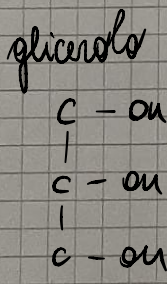 glicerolo
C - OH
|
C - OH
|
C - OH